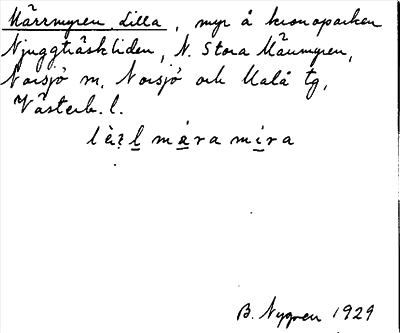 Märrmyren lilla, myr å kronoparken
Njuggträskliden, N. Stora Märrmyren,
Norsjö sn, Norsjö och Malå tg,
Västerb. l.
B. Nygren 1929